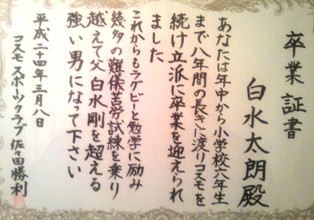 卒業証書
白水太朗殿
あなたは年中から小学校六年生
まで八年間の長きに渡りコスモを
続け立派に卒業を迎えられ
ました
これからもラグビーと勉学に励み
幾多の難儀苦労試練を乗り
越えて父白水剛を超える
強い男になって下さい
平成二十四年三月八日
コスモスポーツクラブ佐々田勝利